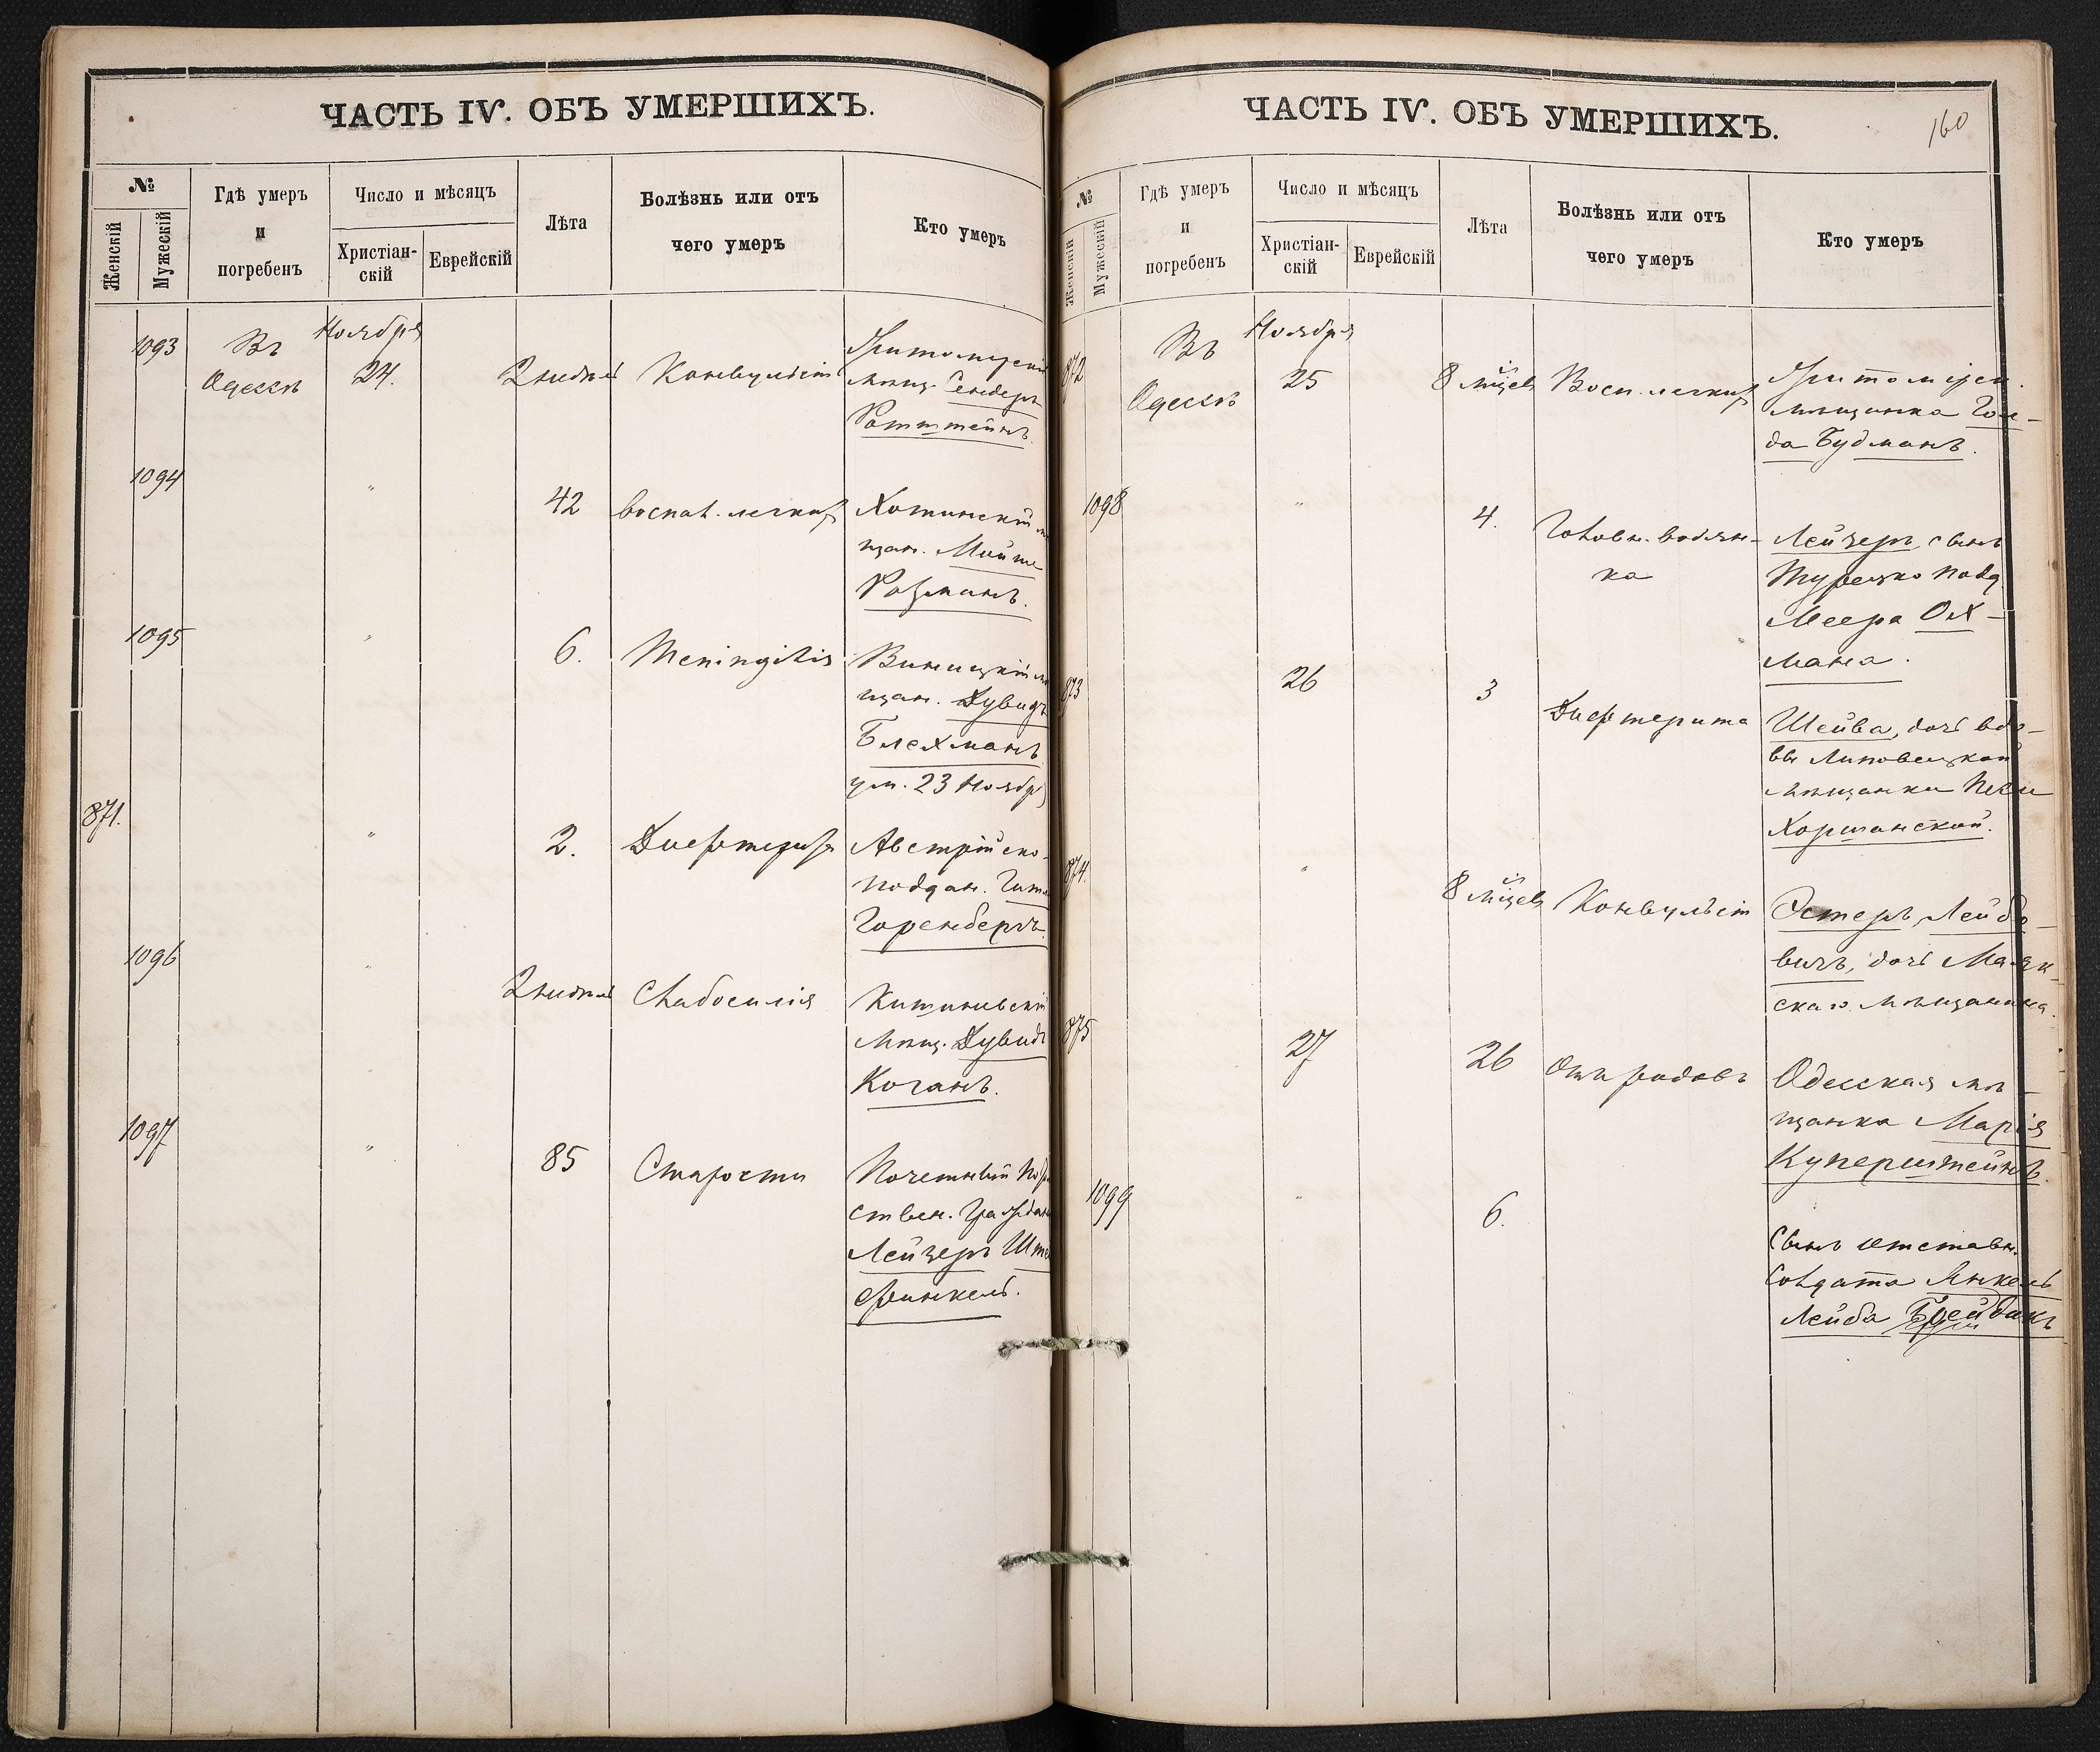 ЧАСТЬ IV. ОБЪ УМЕРШИХЪ.
№
Женскій
Мужескій
Гдѣ умеръ
и
погребенъ
Число и мѣсяцъ
Христіан-
скій
Еврейскій
Лѣта
Болѣзнь или отъ
чего умеръ
Кто умеръ
1093
Въ
Одессѣ
Ноября
24.
2 недѣл
Конвульсіи
Житомірскій
мѣщ. Сендеръ
Ротштейнъ.
1094
"
42
воспал. легких
Хотинскій мѣ
щан. Мойше
Ройзманъ.
1095
"
6.
Meningitis
Виницкій мѣ
щан. Дувидъ
Блехманъ
ум. 23 Ноябр
871.
"
2.
Дифтерит
Австрійско-
поддан. Гит
Горенбергъ.
1096
"
2 недѣл
Слабосилія
Кишиневскій
Мѣщ. Дувидъ
Коганъ.
1097
"
85
Старости
Почетный По
ствен. Гражда
Лейзеръ Ште
финкель.
ЧАСТЬ IV. ОБЪ УМЕРШИХЪ.
160
№
Женскій
Мужескій
Гдѣ умеръ
и
погребенъ
Число и мѣсяцъ
Христіан-
скій
Еврейскій
Лѣта
Болѣзнь или отъ
чего умеръ
Кто умеръ
872
Въ
Одессѣ
Ноября
25
8 мѣсецев
Восп. легких
Житомірск.
мѣщанка Гол-
да Будманъ.
1098
"
4.
Головн. водян-
ка
Лейзеръ, сынъ
Турецко подд
Меера Ох-
мана.
873
26
3
Дифтерита
Шейва, дочь вдо-
вы Липовецкой
мѣщанки Песи
Хоршанской.
874.
"
8 мѣсецев
Конвульсіи
Эстеръ Лейбо-
вичъ, дочь Маяк-
скаго мѣщанина.
875
27
26
Отъ родовъ
Одесская мѣ-
щанка Марія
Куперштейнъ.
1099
"
6.
Сынъ отставн.
Солдата Янкель
Лейба Брейдикъ